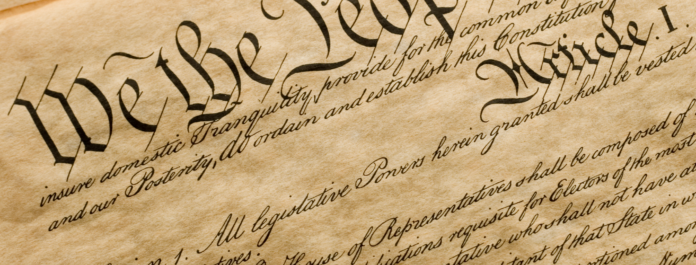 We the Peop
insure domestic Tranquility, provide for the common
and our Posterity, do ordain and establish this Constitution
Article. I.
n 1. All legislative Powers herein granted shall be vested
tives.
House of Representatives shall be composed of
ications requisite for Electors of the most
tative who shall not have a
tant of that State in w
tioned amon